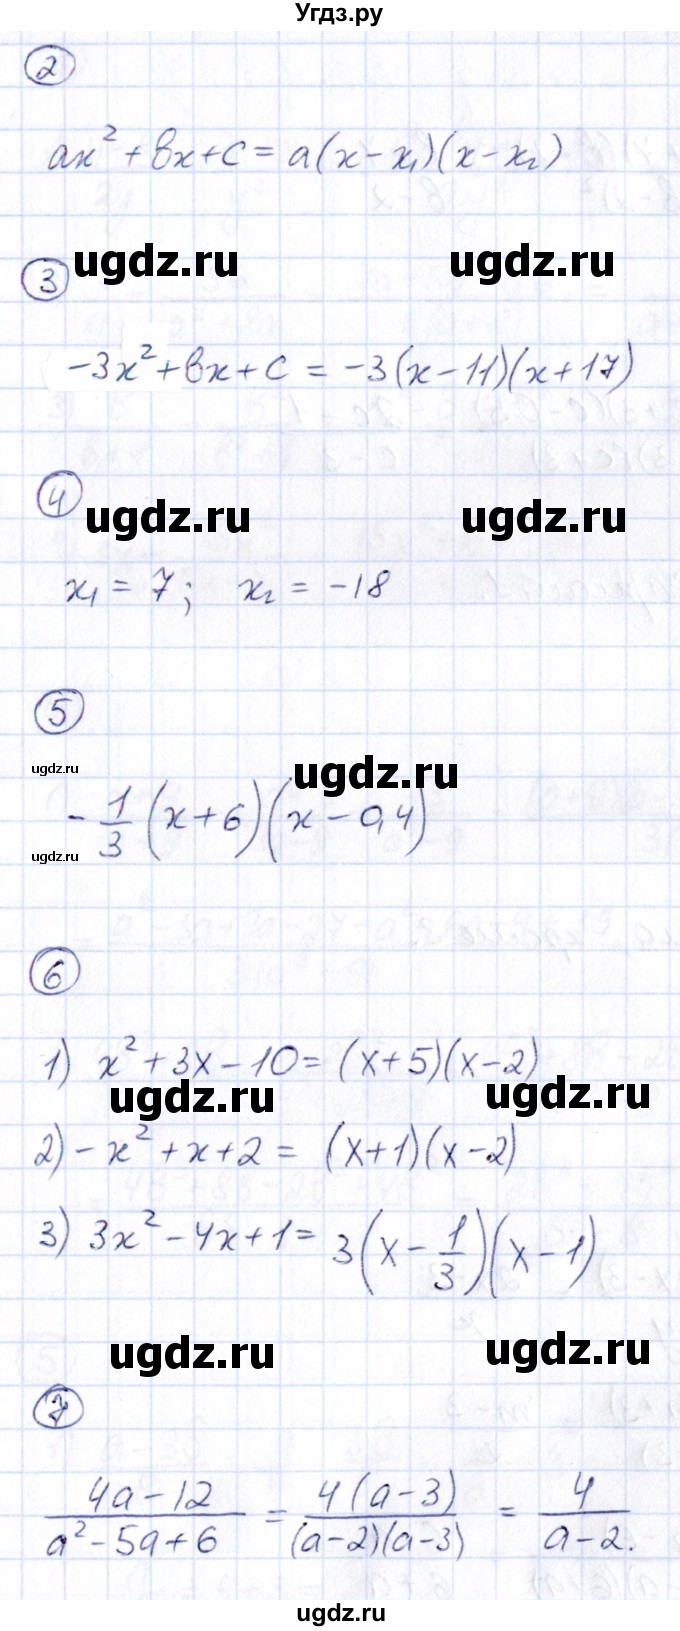 Угдз.ру
2
ax² + bx + c = a(x - x₁)(x - x₂)
ugdz.ru ugdz.ru
3
-3x² + bx + c = -3(x - 11)(x + 17)
4
ugdz.ru ugdz.ru
x₁ = 7; x₂ = -18
5
ugdz.ru ugdz.ru
-1/3 (x + 6)(x - 0,4)
ugdz.ru
6
1) x² + 3x - 10 = (x + 5)(x - 2)
ugdz.ru ugdz.ru
2) -x² + x + 2 = (x + 1)(x - 2)
3) 3x² - 4x + 1 = 3(x - 1/3)(x - 1)
ugdz.ru ugdz.ru
7
(4a - 12)/(a² - 5a + 6) = 4(a - 3)/((a - 2)(a - 3)) = 4/(a - 2).
ugdz.ru